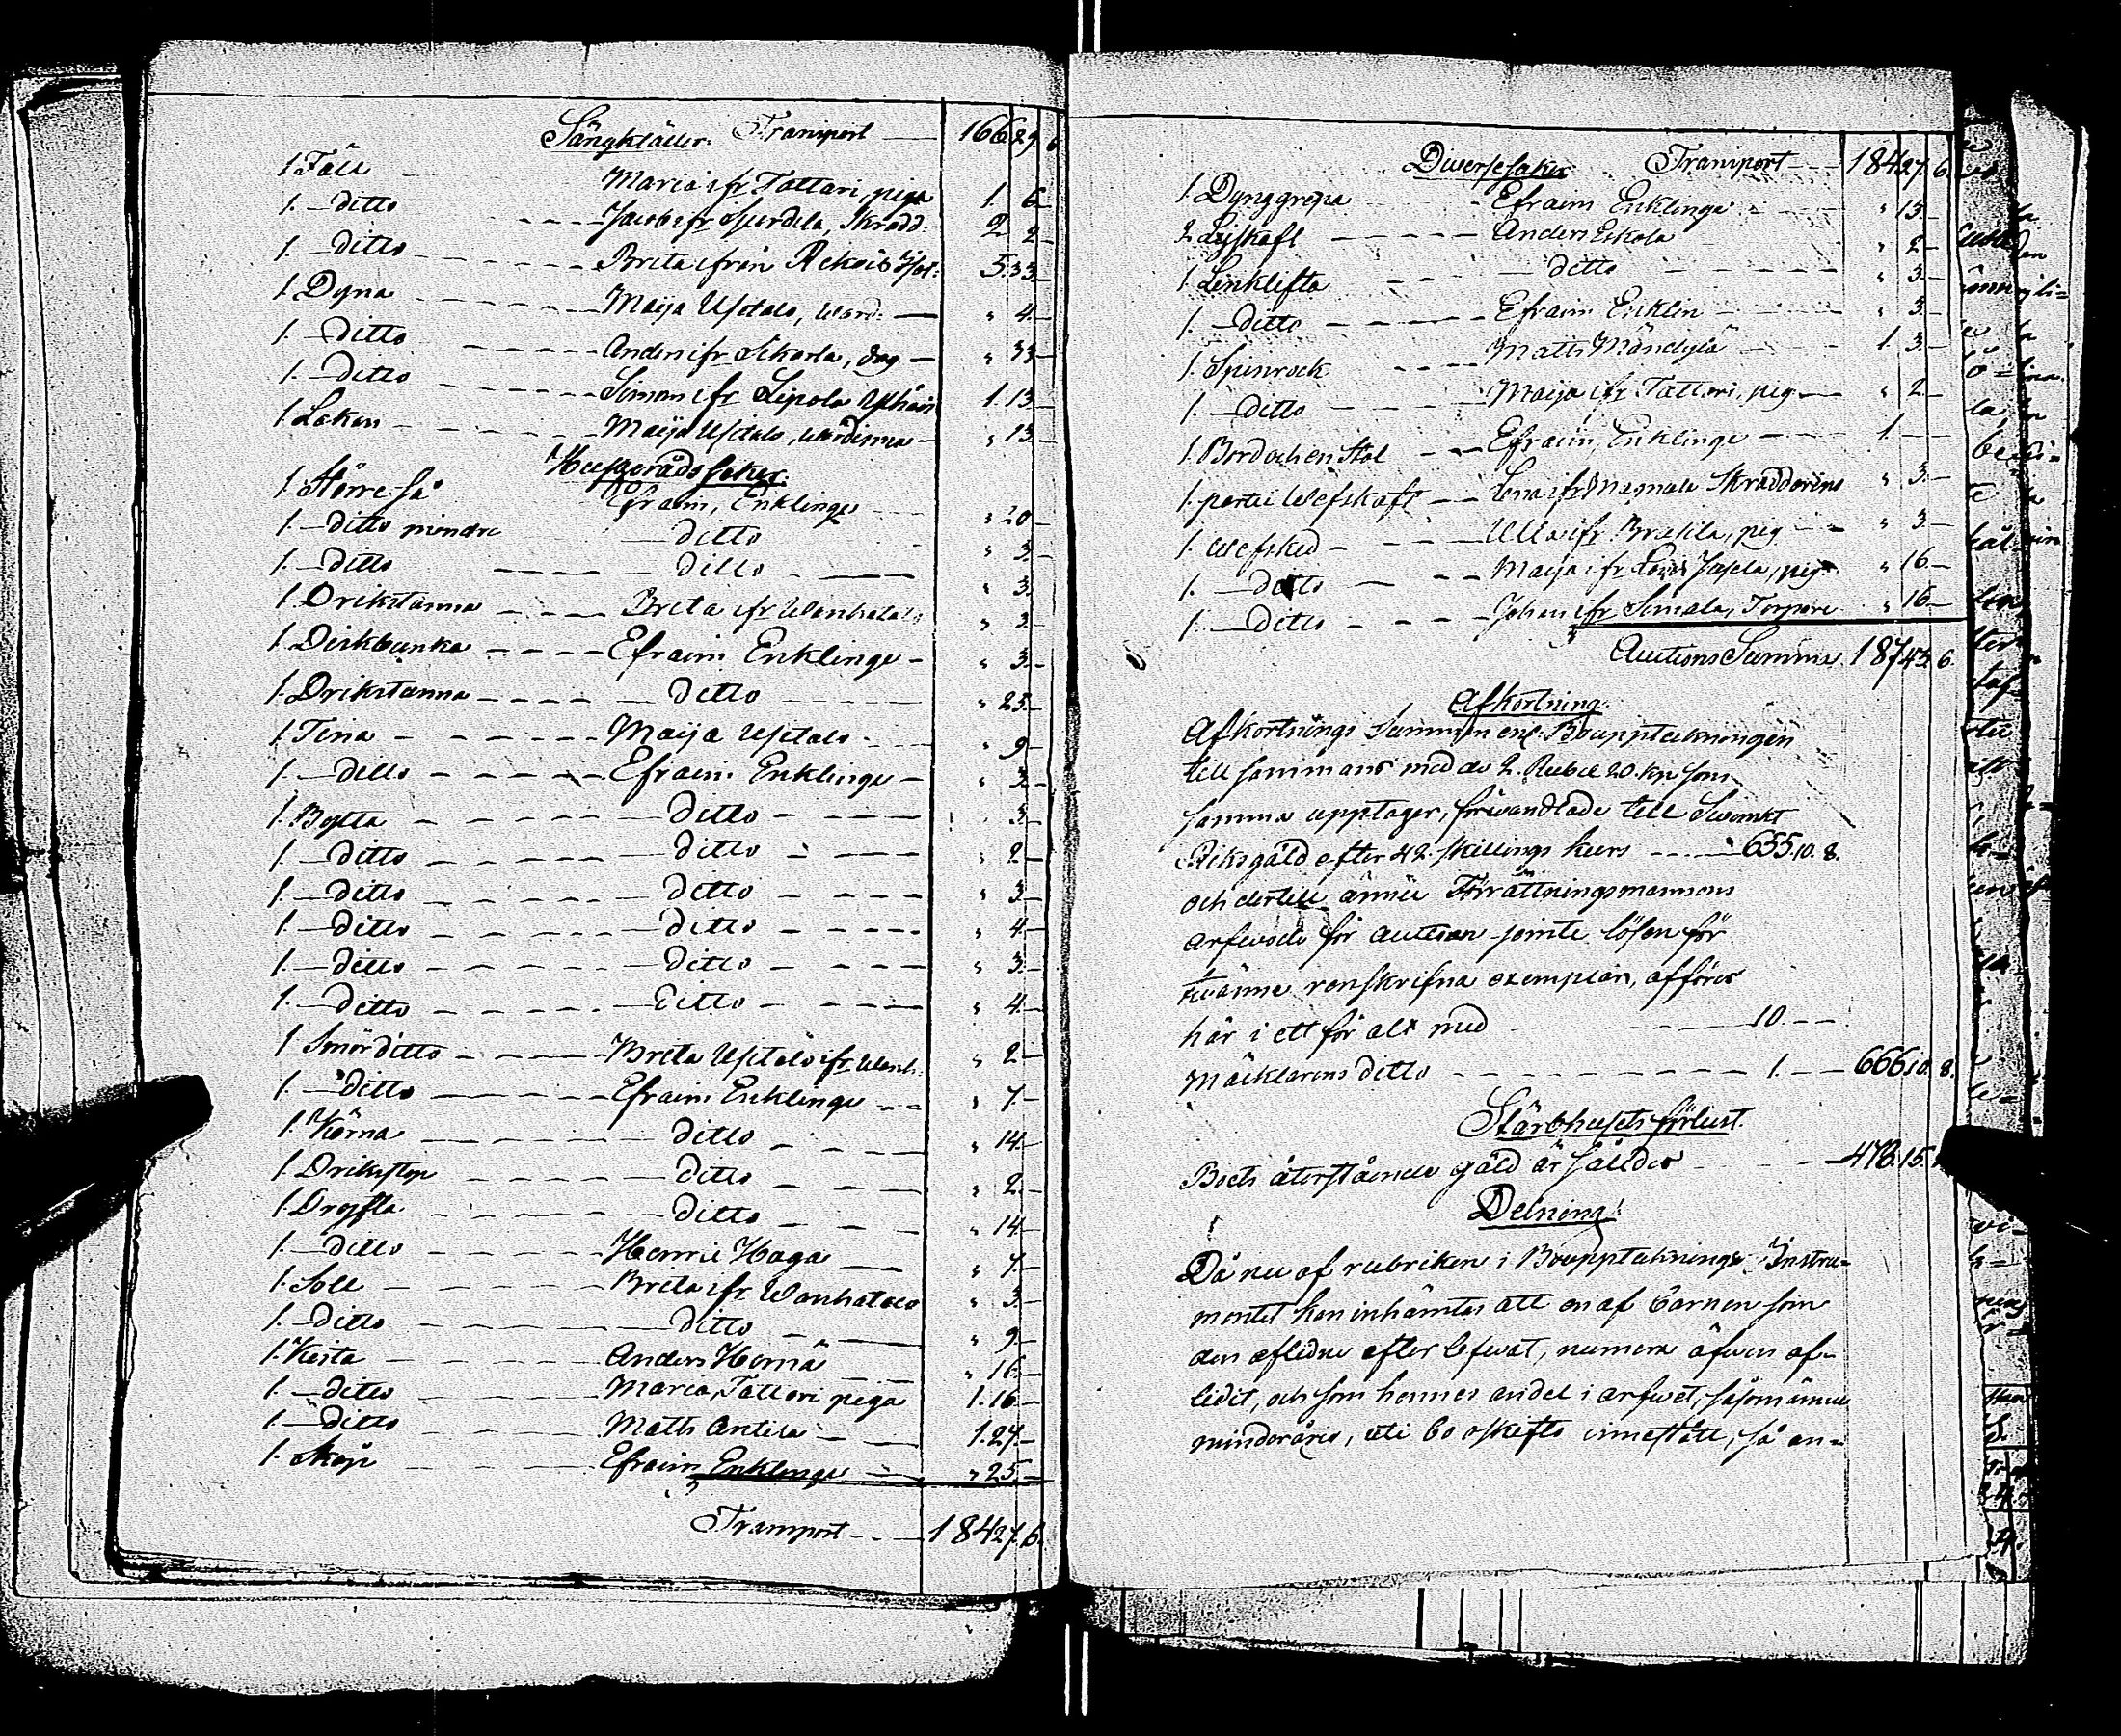 Sängkläder. Transport — 166 29. 6
1 Fäll Maria ifr Tattari, piga 1. 6.—
1.— ditto - - - Jacob ifr Skrädd. 2 2.—
1.— ditto - - - Brita ifrån 5. 33.—
1. Dyna - - - Maija Uptalo, Werd. — " 4.—
1.— ditto - - - Anders ifr — " 33.—
1.— ditto - - - Simon ifr Lipola 1. 13.—
1. Lakan - - - Maija Uptalo, Werdinna — " 13.—
Husgeråds saker.
1. Större Så Efraim, Enklinge " 20.—
1.— ditto mindre — ditto " 3.—
1.— ditto — ditto " 3.—
1. Drikstanna - - - Brita ifr Wanhatalo " 3.—
1. Dirkbunka - - - Efraim Enklinge — " 3.—
1. Drikstanna - - - — ditto " 25.—
1. Tina - - - Maija Uptalo " 9.—
1.— ditto - - - Efraim Enklinge — " 3.—
1. Bytta - - - — ditto - - - " 3.—
1.— ditto - - - — ditto - - - " 2.—
1.— ditto - - - — ditto - - - " 3.—
1.— ditto - - - — ditto - - - " 4.—
1.— ditto - - - — ditto - - - " 3.—
1.— ditto - - - — ditto - - - " 4.—
1 Smör ditto - - - Brita Uptalo ifr Wanh. " 2.—
1.— ditto - - - Efraim Enklinge - - " 7.—
1. Kärna - - - — ditto - - - " 14.—
1. Drikstop - - - — ditto - - - " 2.—
1. Dryfta - - - — ditto - - - " 14.—
1.— ditto - - - Henric Haga — " 7.—
1. Soll - - - Brita ifr Wanhatalo " 3.—
1.— ditto - - - — ditto - - - " 9.—
1. Kista - - - Anders Hernä " 16.—
1.— ditto - - - Maria, Tattari piga 1. 16.—
1.— ditto - - - Matts Antila — 1. 27.—
1. Skåp - - - Efraim Enklinge — " 25.—
Transport - - — 184 27. 6.
Diverse saker Transport — 184 27. 6.
1. Dynggrepa - - - Efraim Enklinge " 13.—
2 Lijskaft - - - Anders Eskola " 2.—
1. Linklifta - - — ditto - - - " 3.—
1.— ditto - - - Efraim Enklin " 3.—
1. Spinrock - - - Matts Mändylä 1. 3.—
1.— ditto - - - Maija ifr Tattari, pig — " 2.—
1. Bord och en Stol - - Efraim, Enklinge — 1. —
1. parti Wefskaft - - Lena ifr Magnula Skräddarens " 3.—
1. Wefsked - - - Ulla ifr pig — " 3.—
1.— ditto - - Maija ifr pig " 16.—
1.— ditto - - - Johan ifr Simala, Torpare " 16.—
Auctions Summa 187 43. 6.
Afkortning.
Afkortnings Summan enl. Boupptekningen
till sammans med de 2. Rubel 20. kop som
samma upptager, förwandlade till Swenskt
Riksgäld efter 42. skillings kurs - - 655. 10. 8.
och dertill ännu Förrättningsmannens
arfwode för auction jemte lösen för
twänne renskrifna exemplar, afföres
här i ett för alt med - - - 10. - -
Mäcklarens ditto - - - 1. - - 666 10. 8.
Stärbhusets förlust.
Boets återstående gäld är således - - 478. 15.
Delning.
Då nu af rubriken i Boupptecknings Instru=
mentet kan inhämtas att en af barnen som
den aflidne efter lefwat, numera äfwen af=
lidit, och som hennes andel i arfwet, såsom ännu
minderårig, uti bo oskifto innestått, så an=